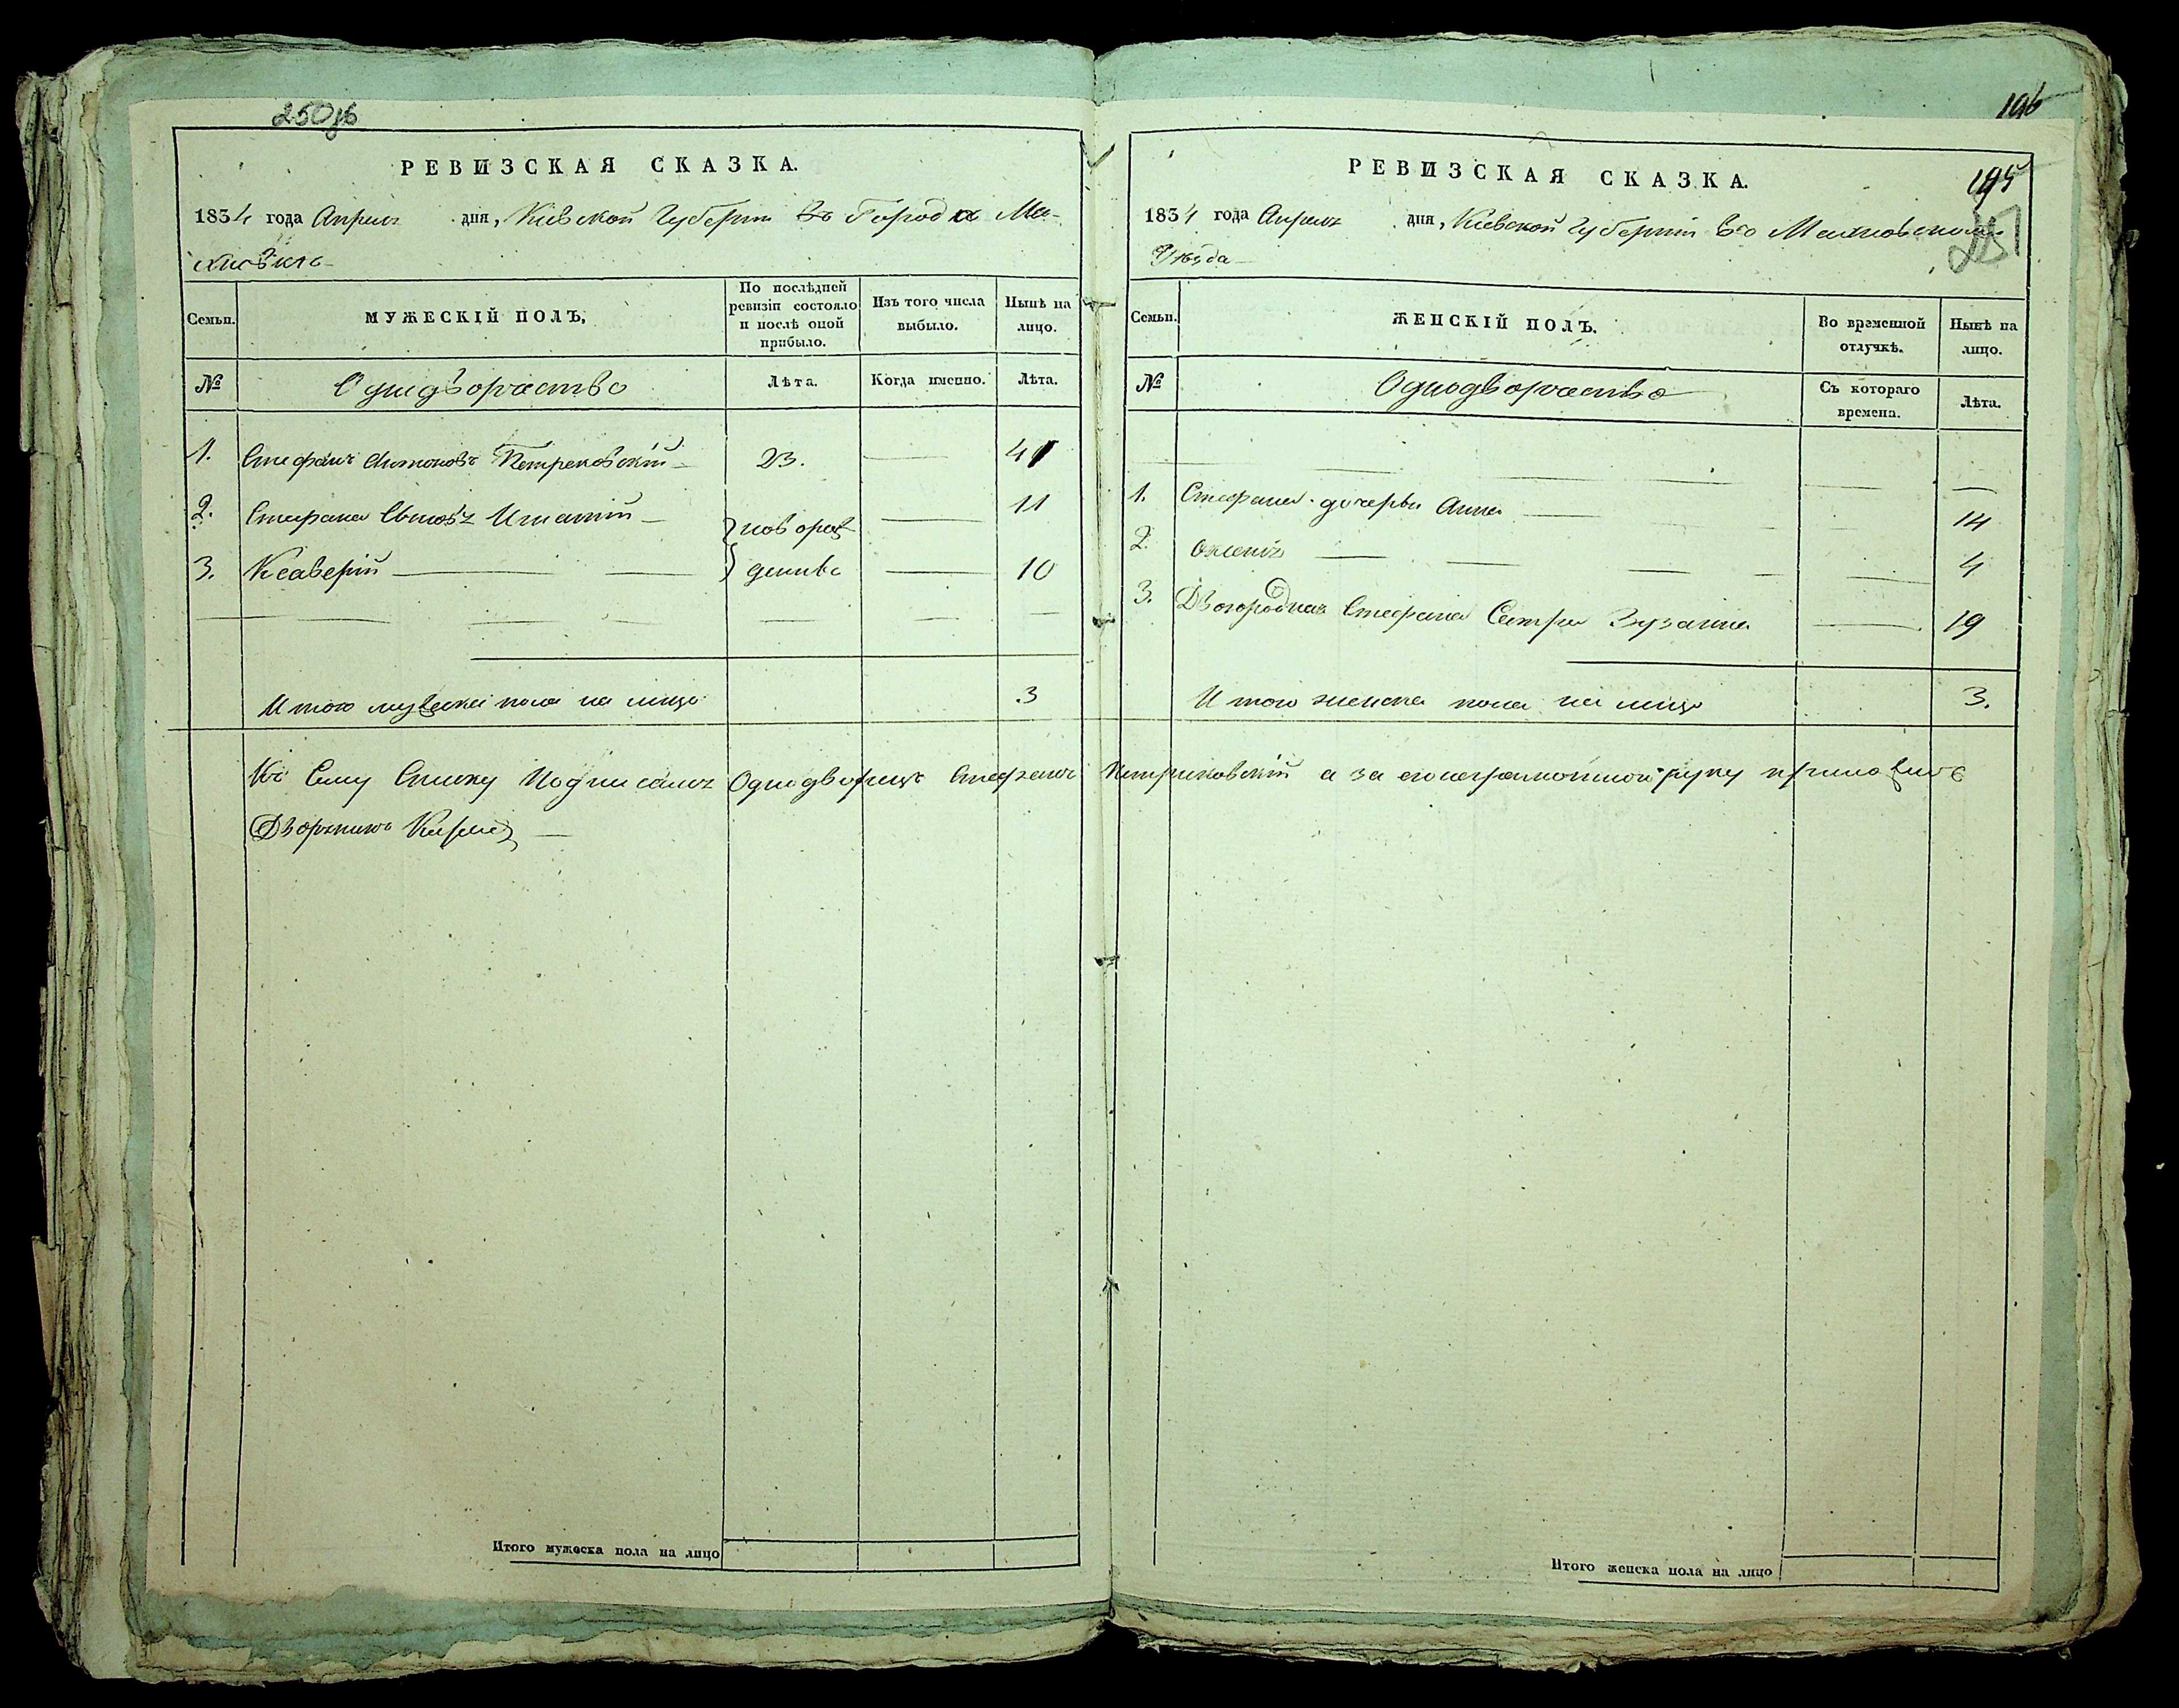 250об
РЕВИЗСКАЯ СКАЗКА.
1834 года Апреля дня, Кіевской Губерніи въ Город
МУЖЕСКІЙ ПОЛЪ,
Семьи.
По послѣдней ревизіи состояло и послѣ оной прибыло.
Изъ того числа выбыло.
Нынѣ на лицо.
№
Однодворчество
Лѣта.
Когда именно.
Лѣта.
1. Стефанъ Антоновъ Петрековскій 23. 41
2. Стефана Сыновъ Игнатій 11
новорож
3. Ксаверій 10
денные
Итого мужеска пола на лицо 3
Къ Сему Списку Подписалъ Однодворецъ Стефанъ Петриковскій а за его неграмотного руку приложилъ
Дворянинъ
Итого мужеска пола на лицо
196
195
251
РЕВИЗСКАЯ СКАЗКА.
1834 года Апреля дня, Кіевской Губерніи
Уѣзда
Семьи.
ЖЕНСКІЙ ПОЛЪ.
Во временной отлучкѣ.
Нынѣ на лицо.
№
Однодворчество
Съ котораго времена.
Лѣта.
1. Стефана дочерьи Анна 14
2. 4
3. Двоюродная Стефана Сестра Зузанна 19
Итого женска пола на лицо 3.
Итого женска пола на лицо